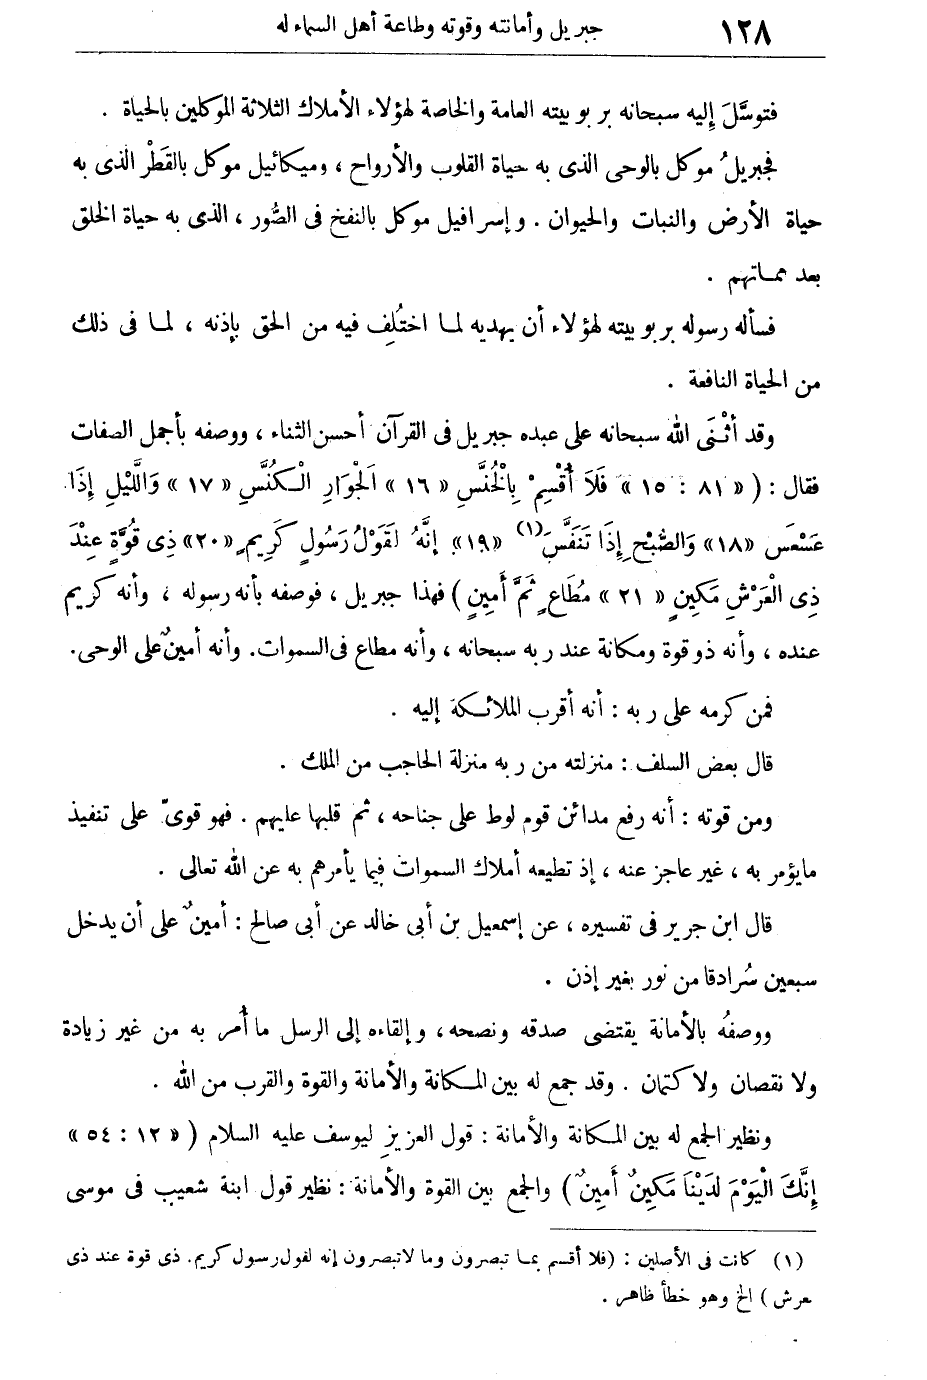 ١٢٨ جبريل وأمانته وقوته وطاعة أهل السماء له
فتوسَّلَ إليه سبحانه بربوبيته العامة والخاصة لهؤلاء الأملاك الثلاثة الموكلين بالحياة .
فجبريلُ موكل بالوحى الذى به حياة القلوب والأرواح ، وميكائيل موكل بالقَطْر الذى به
حياة الأرض والنبات والحيوان . وإسرافيل موكل بالنفخ فى الصُّور ، الذى به حياة الخلق
بعد مماتهم .
فسأله رسوله بربوبيته لهؤلاء أن يهديه لما اختُلِف فيه من الحق بإذنه ، لما فى ذلك
من الحياة النافعة .
وقد أثْنَى الله سبحانه على عبده جبريل فى القرآن أحسن الثناء ، ووصفه بأجمل الصفات
فقال : ( « ٨١ : ١٥ » فَلَا أُقْسِمُ بِالْخُنَّسِ « ١٦ » اَلْجَوَارِ الْكُنَّسِ « ١٧ » وَاللَّيْلِ إِذَا
عَسْعَسَ «١٨» وَالصُّبْحِ إِذَا تَنَفَّسَ(١) «١٩» إِنَّهُ لَقَوْلُ رَسُولٍ كَرِيمٍ «٢٠» ذِى قُوَّةٍ عِنْدَ
ذِى الْعَرْشِ مَكِينٍ « ٢١ » مُطَاعٍ ثَمَّ أَمِينٍ ) فهذا جبريل ، فوصفه بأنه رسوله ، وأنه كريم
عنده ، وأنه ذو قوة ومكانة عند ربه سبحانه ، وأنه مطاع فى السموات. وأنه أمينٌ على الوحى.
فمن كرمه على ربه : أنه أقرب الملائكة إليه .
قال بعض السلف : منزلته من ربه منزلة الحاجب من الملك .
ومن قوته : أنه رفع مدائن قوم لوط على جناحه ، ثم قلبها عليهم . فهو قوىّ على تنفيذ
مايؤمر به ، غير عاجز عنه ، إذ تطيعه أملاك السموات فيما يأمرهم به عن الله تعالى .
قال ابن جرير فى تفسيره ، عن إسمعيل بن أبى خالد عن أبى صالح : أمينٌ على أن يدخل
سبعين سُرادقا من نور بغير إذن .
ووصفهُ بالأمانة يقتضى صدقه ونصحه ، وإلقاءه إلى الرسل ما أُمر به من غير زيادة
ولا نقصان ولا كتمان . وقد جمع له بين المكانة والأمانة والقوة والقرب من الله .
ونظير الجمع له بين المكانة والأمانة : قول العزيز ليوسف عليه السلام ( « ١٢ : ٥٤ »
إِنَّكَ الْيَوْمَ لَدَيْنَا مَكِينٌ أَمِينٌ ) والجمع بين القوة والأمانة : نظير قول ابنة شعيب فى موسى
(١) كانت فى الأصلين : (فلا أقسم بما تبصرون وما لاتبصرون إنه لقول رسول كريم. ذى قوة عند ذى
عرش ) الخ وهو خطأ ظاهر .